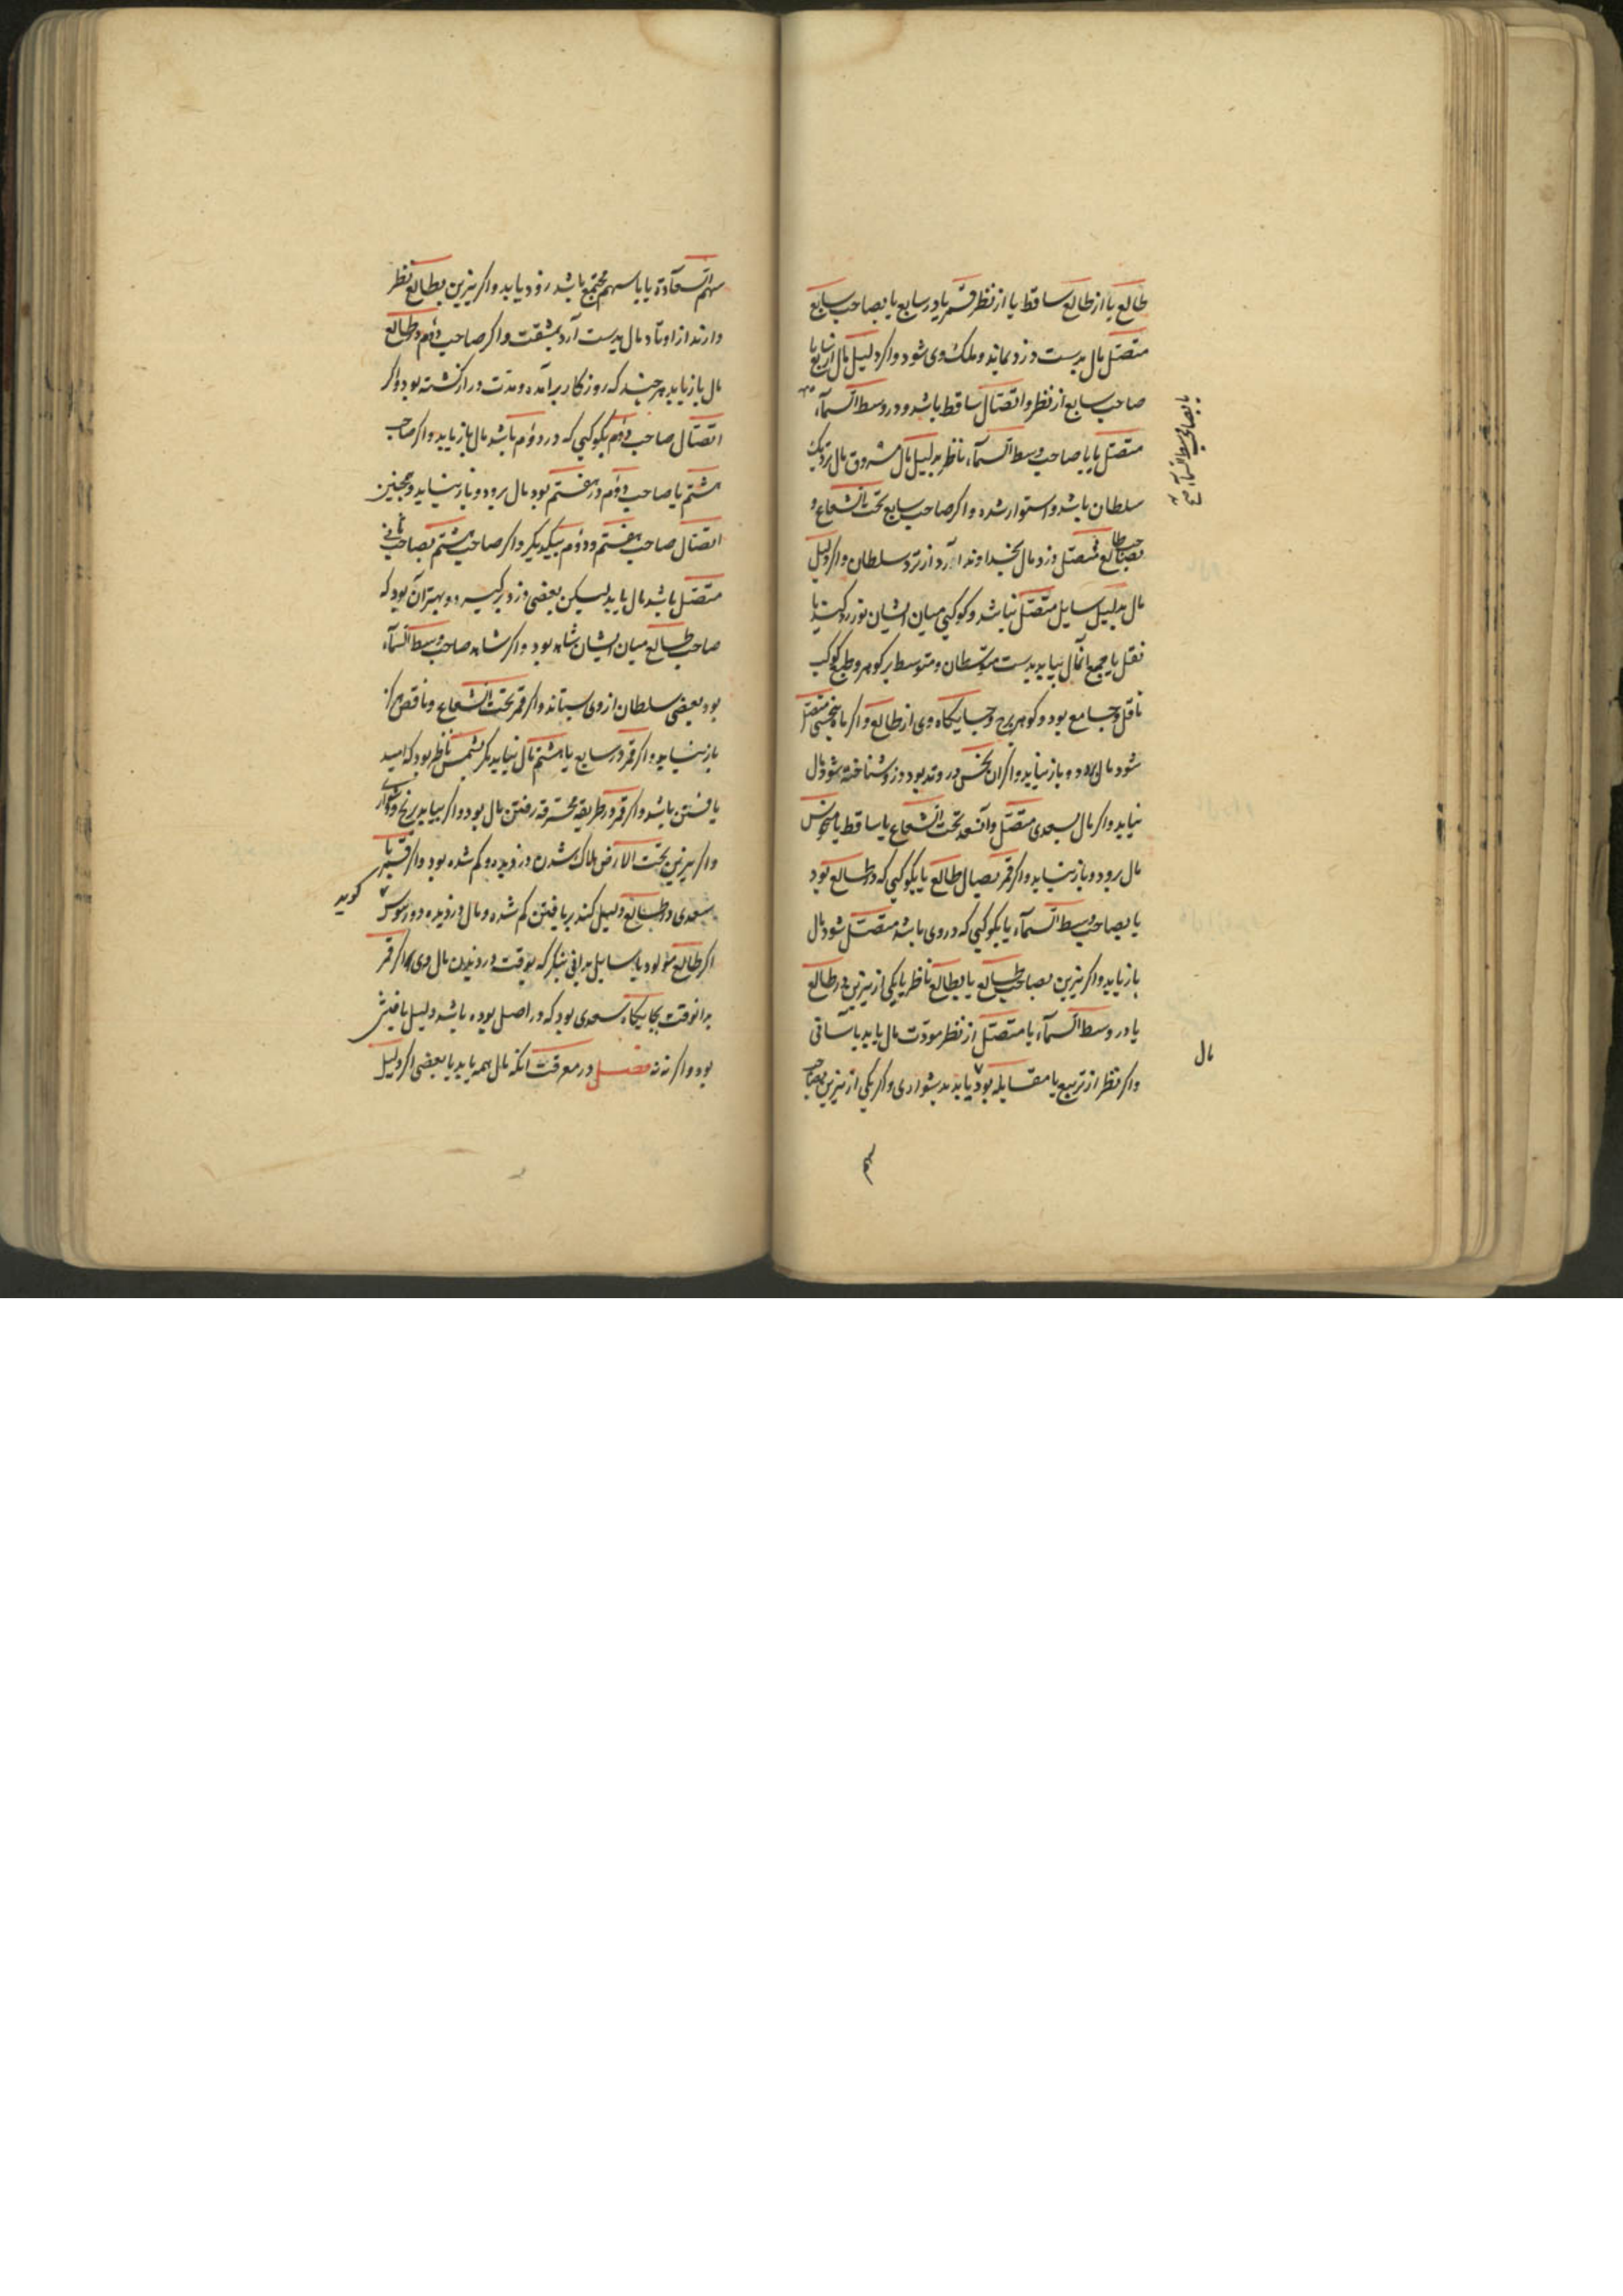 طالع یا از طالع ساقط یا از نظر قمر یا در سابع یا بصاحب سابع
متصل مال بدست دزد بماند و ملک وی شود و اکر دلیل مال از سابع یا
صاحب سابع از نظر و اتصال ساقط باشد و در وسط السماء
متصل یا با صاحب وسط السماء ناظر بدلیل مال مسروق مال نزدیک
سلطان باشد و استوار شده و اکر صاحب سابع تحت الشعاع و
بصاحب طالع متصل دزد مال بخداوند آرد از نزد سلطان و اکر دلیل
مال بدلیل سایل متصل نباشد و کوکبی میان ایشان نور رد کند یا
نقل یا جمع آن مال بیابد بدست متوسطان و متوسط بر کوهر و طبع کوکب
ناقل و جامع بود و کوهر برج و جایکاه وی از طالع و اکر ماه بنحسی متصل
شود مال برود و باز نیابد و اکر آن نحس در وتد بود دزد شناخته شود مال
نیابد و اکر مال بسعدی متصل و آن سعد تحت الشعاع یا ساقط یا منحوس
مال برود و باز نیابد و اکر قمر بصاحب طالع یا بکوکبی که در طالع بود
یا بصاحب وسط السماء یا بکوکبی که در وی باشد متصل شود مال
باز یابد و اکر نیرین بصاحب طالع یا بطالع ناظر یا یکی از نیرین در طالع
یا در وسط السماء یا متصل از نظر مودت مال یابد بآسانی
و اکر نظر از تربیع یا مقابله بود یابد بدشواری و اکر یکی از نیرین بصاحب
یا بصاحب وسط السماء
مال
سهم السعادة یا با سهم مجتمع باشد زود یابد و اکر نیرین بطالع نظر
دارند از اوتاد مال بدست آرد بمشقت و اکر صاحب دوم در طالع
مال باز یابد هر چند که روزکار برآمده و مدت دراز کذشته بود و اکر
اتصال صاحب دوم بکوکبی که در دوم باشد مال باز یابد و اکر صاحب
هشتم یا صاحب دوم در هفتم بود مال برود و باز نیابد و همچنین
اتصال صاحب هفتم و دوم بیکدیکر و اکر صاحب هشتم بصاحب ثانی
متصل باشد مال یابد لیکن بعضی دزد برکیرد و بهتر آن بود که
صاحب طالع میان ایشان شاهد بود و اکر شاهد صاحب وسط السماء
بود بعضی سلطان از وی ستاند و اکر قمر تحت الشعاع و ناقص هرکز
باز نیابد و اکر قمر در سابع یا هشتم مال نیابد مکر شمس ناظر بود که امید
یافتن باشد و اکر قمر در طریقه محترقه رفتن مال بود و اکر بیابد برنج و دشواری
و اکر نیرین تحت الارض هلاک شدن دزدیده و کم شده بود و اکر قمر یا
سعدی در طالع دلیل کند بر یافتن کم شده و مال دزدیده و دوروسوس کوید
اکر طالع مولود یا سایل بدانی بنکر که بوقت دزدیدن مال وی اکر قمر
بدانوقت بجایکاه سعدی بود که در اصل بوده باشد دلیل یافتنش
بود و اکر نه نه فصل در معرفت آنکه مال همه یابد یا بعضی اکر دلیل